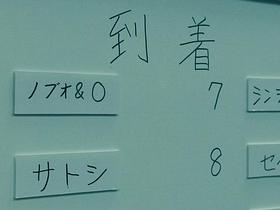 到着
ノブオ&O 7 シンジ
サトシ 8 セ